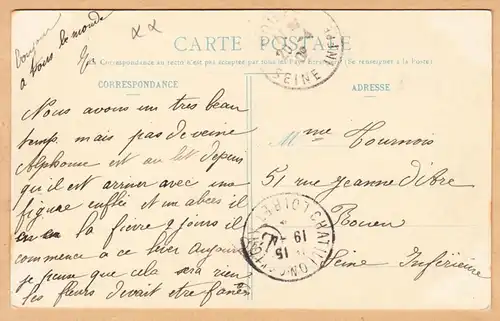 Bonjour
a tous le monde
CARTE POSTALE
La Correspondance au recto n'est pas acceptée par tous les Pays Etrangers (Se renseigner à la Poste)
CORRESPONDANCE
ADRESSE
SEINE INFRE
Nous avons un tres beau
temps, mais pas de veine
Alphonse est au lit depuis
qu'il est arriver avec une
figure enflée et un abcès il
en a la fievre 9 jours il
commence a ce lever Aujour
je pense que cela sera rien
les fleurs devait etre fanés
Mme Tournois
51 rue Jeanne d'Arc
Rouen
Seine Inférieure
CHATILLON
LOIRET
15
19-4